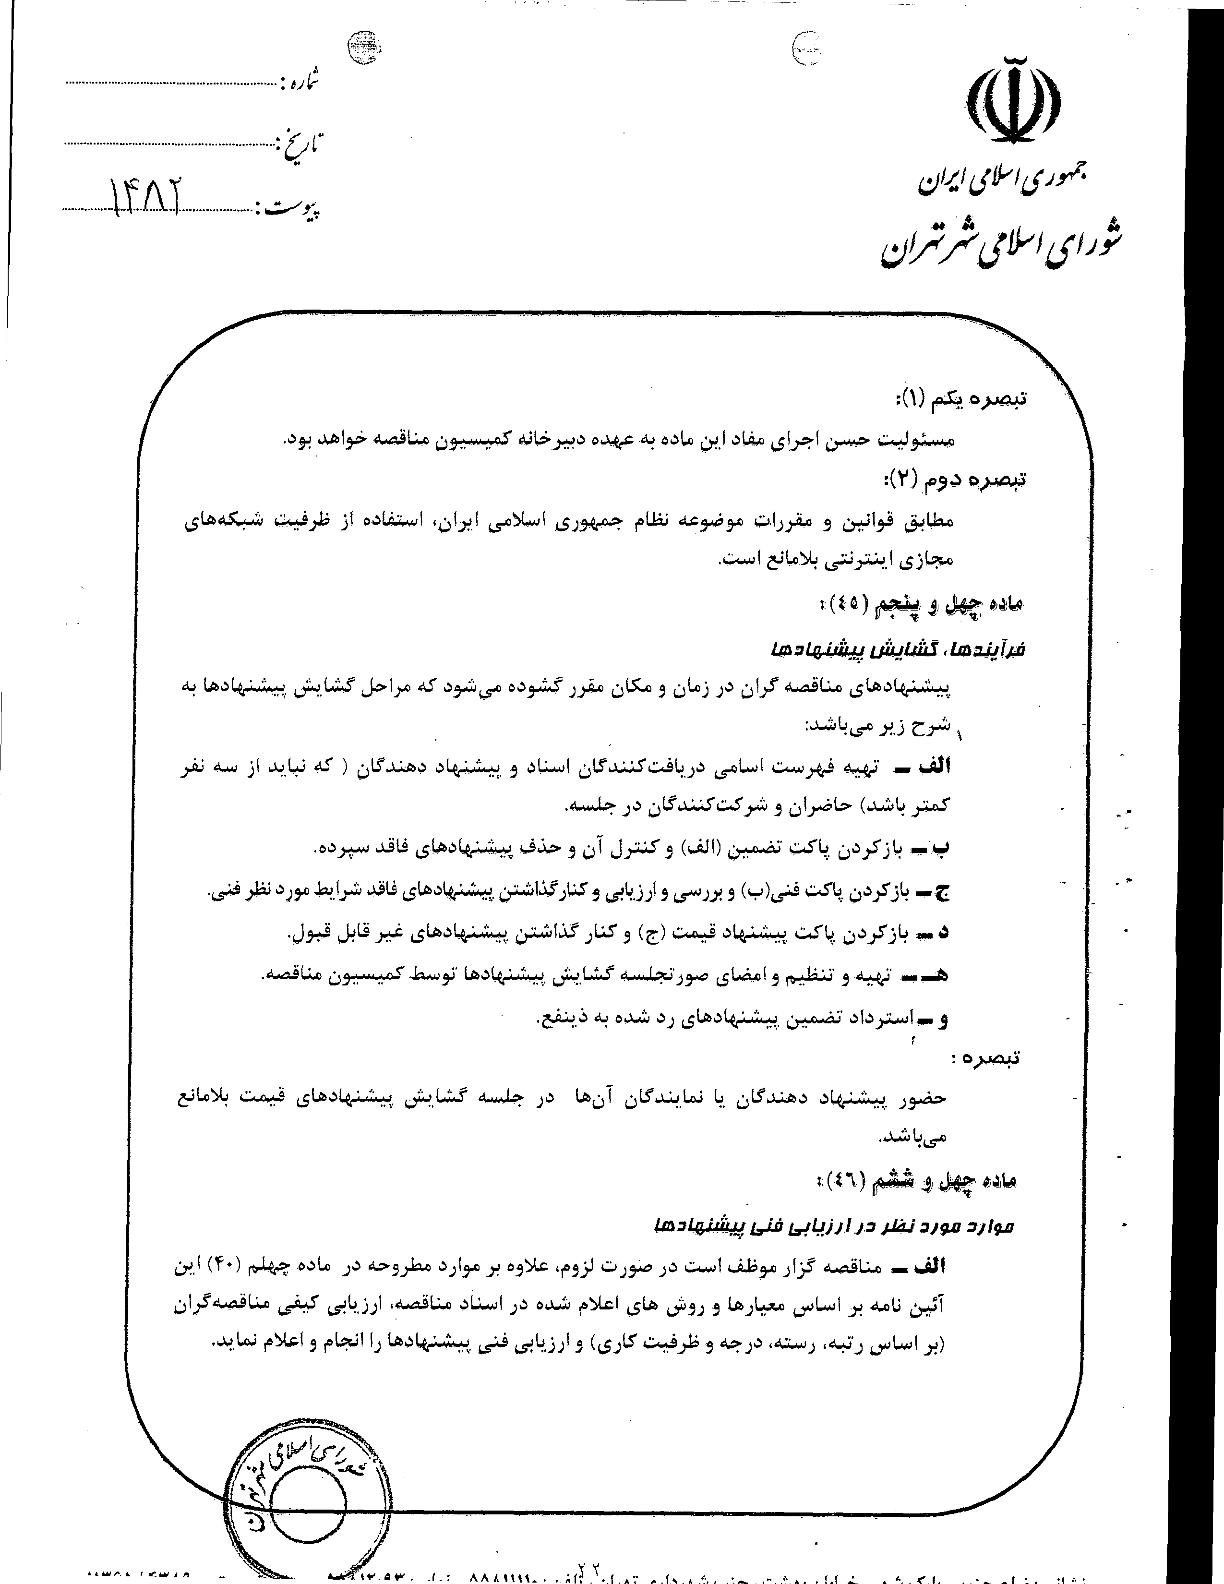 جمهوری اسلامی ایران
شورای اسلامی شهر تهران
شماره :
تاریخ :
پیوست : ۱۴۸۲
تبصره یکم (۱):
مسئولیت حسن اجرای مفاد این ماده به عهده دبیرخانه کمیسیون مناقصه خواهد بود.
تبصره دوم (۲):
مطابق قوانین و مقررات موضوعه نظام جمهوری اسلامی ایران، استفاده از ظرفیت شبکه‌های
مجازی اینترنتی بلامانع است.
ماده چهل و پنجم (٤٥):
فرآیندها، گشایش پیشنهادها
پیشنهادهای مناقصه گران در زمان و مکان مقرر گشوده می‌شود که مراحل گشایش پیشنهادها به
شرح زیر می‌باشد:
الف – تهیه فهرست اسامی دریافت‌کنندگان اسناد و پیشنهاد دهندگان ( که نباید از سه نفر
کمتر باشد) حاضران و شرکت‌کنندگان در جلسه.
ب – بازکردن پاکت تضمین (الف) و کنترل آن و حذف پیشنهادهای فاقد سپرده.
ج – بازکردن پاکت فنی(ب) و بررسی و ارزیابی و کنارگذاشتن پیشنهادهای فاقد شرایط مورد نظر فنی.
د – بازکردن پاکت پیشنهاد قیمت (ج) و کنار گذاشتن پیشنهادهای غیر قابل قبول.
هـ – تهیه و تنظیم و امضای صورتجلسه گشایش پیشنهادها توسط کمیسیون مناقصه.
و – استرداد تضمین پیشنهادهای رد شده به ذینفع.
تبصره :
حضور پیشنهاد دهندگان یا نمایندگان آن‌ها در جلسه گشایش پیشنهادهای قیمت بلامانع
می‌باشد.
ماده چهل و ششم (٤٦):
موارد مورد نظر در ارزیابی فنی پیشنهادها
الف – مناقصه گزار موظف است در صورت لزوم، علاوه بر موارد مطروحه در ماده چهلم (۴۰) این
آئین نامه بر اساس معیارها و روش های اعلام شده در اسناد مناقصه، ارزیابی کیفی مناقصه‌گران
(بر اساس رتبه، رسته، درجه و ظرفیت کاری) و ارزیابی فنی پیشنهادها را انجام و اعلام نماید.
شورای اسلامی شهر تهران
۲۲